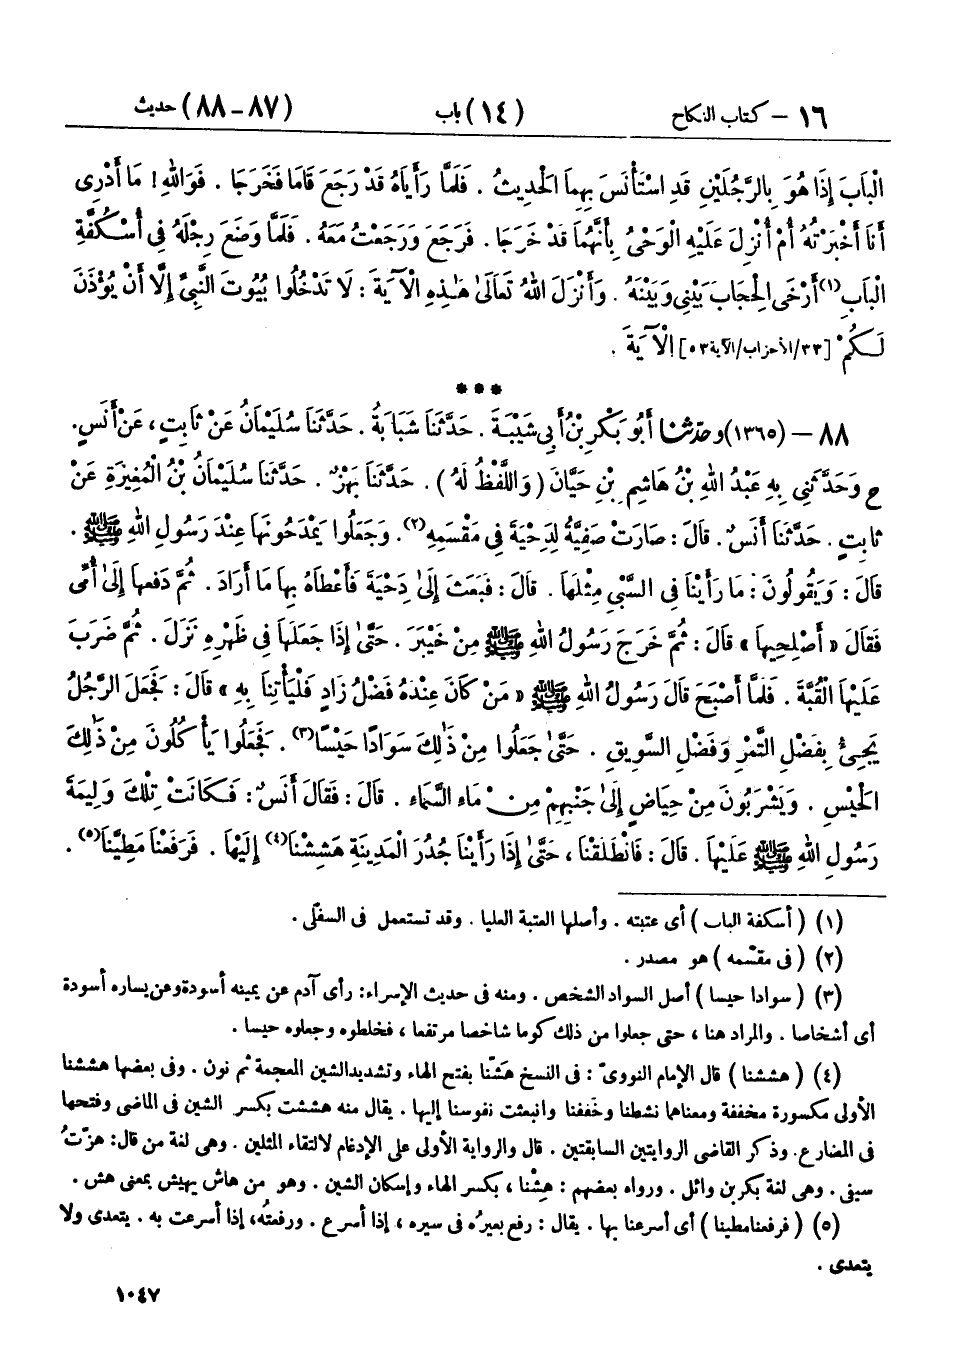 ١٦ – كتاب النكاح (١٤) باب (٨٧ – ٨٨) حديث
الْبَابَ إِذَا هُوَ بِالرَّجُلَيْنِ قَدِ اسْتَأْنَسَ بِهِمَا الْحَدِيثُ . فَلَمَّا رَأَيَاهُ قَدْ رَجَعَ قَامَا فَخَرَجَا . فَوَاللهِ ! مَا أَدْرِى
أَنَا أَخْبَرْتُهُ أَمْ أُنْزِلَ عَلَيْهِ الْوَحْىُ بِأَنَّهُمَا قَدْ خَرَجَا . فَرَجَعَ وَرَجَعْتُ مَعَهُ . فَلَمَّا وَضَعَ رِجْلَهُ فِى أُسْكُفَّةِ
الْبَابِ(١) أَرْخَى الْحِجَابَ بَيْنِى وَبَيْنَهُ . وَأَنْزَلَ اللهُ تَعَالَىٰ هَـٰذِهِ الْآيَةَ : لَا تَدْخُلُوا بُيُوتَ النَّبِىِّ إِلَّا أَنْ يُؤْذَنَ
لَكُمْ [٣٣/الأحزاب/الآية ٥٣] الْآيَةَ .
***
٨٨ – (١٣٦٥) وحدّثنا أَبُو بَكْرِ بْنُ أَبِى شَيْبَةَ . حَدَّثَنَا شَبَابَةُ . حَدَّثَنَا سُلَيْمَانُ عَنْ ثَابِتٍ ، عَنْ أَنَسٍ.
ح وَحَدَّثَنِى بِهِ عَبْدُ اللهِ بْنُ هَاشِمِ بْنِ حَيَّانَ (وَاللَّفْظُ لَهُ) . حَدَّثَنَا بَهْزٌ . حَدَّثَنَا سُلَيْمَانُ بْنُ الْمُغِيرَةِ عَنْ
ثَابِتٍ . حَدَّثَنَا أَنَسٌ . قَالَ : صَارَتْ صَفِيَّةُ لِدِحْيَةَ فِى مَقْسَمِهِ(٢) . وَجَعَلُوا يَمْدَحُونَهَا عِنْدَ رَسُولِ اللهِ ﷺ .
قَالَ : وَيَقُولُونَ : مَا رَأَيْنَا فِى السَّبْىِ مِثْلَهَا . قَالَ : فَبَعَثَ إِلَىٰ دِحْيَةَ فَأَعْطَاهُ بِهَا مَا أَرَادَ . ثُمَّ دَفَعَهَا إِلَىٰ أُمِّى
فَقَالَ « أَصْلِحِيهَا » قَالَ : ثُمَّ خَرَجَ رَسُولُ اللهِ ﷺ مِنْ خَيْبَرَ . حَتَّىٰ إِذَا جَعَلَهَا فِى ظَهْرِهِ نَزَلَ . ثُمَّ ضَرَبَ
عَلَيْهَا الْقُبَّةَ . فَلَمَّا أَصْبَحَ قَالَ رَسُولُ اللهِ ﷺ « مَنْ كَانَ عِنْدَهُ فَضْلُ زَادٍ فَلْيَأْتِنَا بِهِ » قَالَ : فَجَعَلَ الرَّجُلُ
يَجِىءُ بِفَضْلِ التَّمْرِ وَفَضْلِ السَّوِيقِ . حَتَّىٰ جَعَلُوا مِنْ ذَٰلِكَ سَوَادًا حَيْسًا(٣) . فَجَعَلُوا يَأْكُلُونَ مِنْ ذَٰلِكَ
الْحَيْسِ . وَيَشْرَبُونَ مِنْ حِيَاضٍ إِلَىٰ جَنْبِهِمْ مِنْ مَاءِ السَّمَاءِ . قَالَ : فَقَالَ أَنَسٌ : فَكَانَتْ تِلْكَ وَلِيمَةَ
رَسُولِ اللهِ ﷺ عَلَيْهَا . قَالَ : فَانْطَلَقْنَا ، حَتَّىٰ إِذَا رَأَيْنَا جُدُرَ الْمَدِينَةِ هَشِشْنَا(٤) إِلَيْهَا . فَرَفَعْنَا مَطِيَّنَا(٥) .
(١) ( أسكفة الباب ) أى عتبته . وأصلها العتبة العليا . وقد تستعمل فى السفلى .
(٢) ( فى مقسمه ) هو مصدر .
(٣) ( سوادا حيسا ) أصل السواد الشخص . ومنه فى حديث الإسراء : رأى آدم عن يمينه أسودة وعن يساره أسودة
أى أشخاصا . والمراد هنا ، حتى جعلوا من ذلك كوما شاخصا مرتفعا ، فخلطوه وجعلوه حيسا .
(٤) ( هششنا ) قال الإمام النووىّ : فى النسخ هَشَّنا بفتح الهاء وتشديد الشين المعجمة ثم نون . وفى بعضها هششنا
الأولى مكسورة مخففة ومعناهما نشطنا وخففنا وانبعثت نفوسنا إليها . يقال منه هششت بكسر الشين فى الماضى وفتحها
فى المضارع. وذكر القاضى الروايتين السابقتين . قال والرواية الأولى على الإدغام لالتقاء المثلين . وهى لغة من قال: هزّتُ
سيفى . وهى لغة بكر بن وائل . ورواه بعضهم : هِشْنا ، بكسر الهاء وإسكان الشين . وهو من هاش يهيش بمعنى هش .
(٥) ( فرفعنا مطينا ) أى أسرعنا بها . يقال : رفع بعيرُه فى سيره ، إذا أسرع . ورفعتُه، إذا أسرعت به . يتعدى ولا
يتعدى .
١٠٤٧